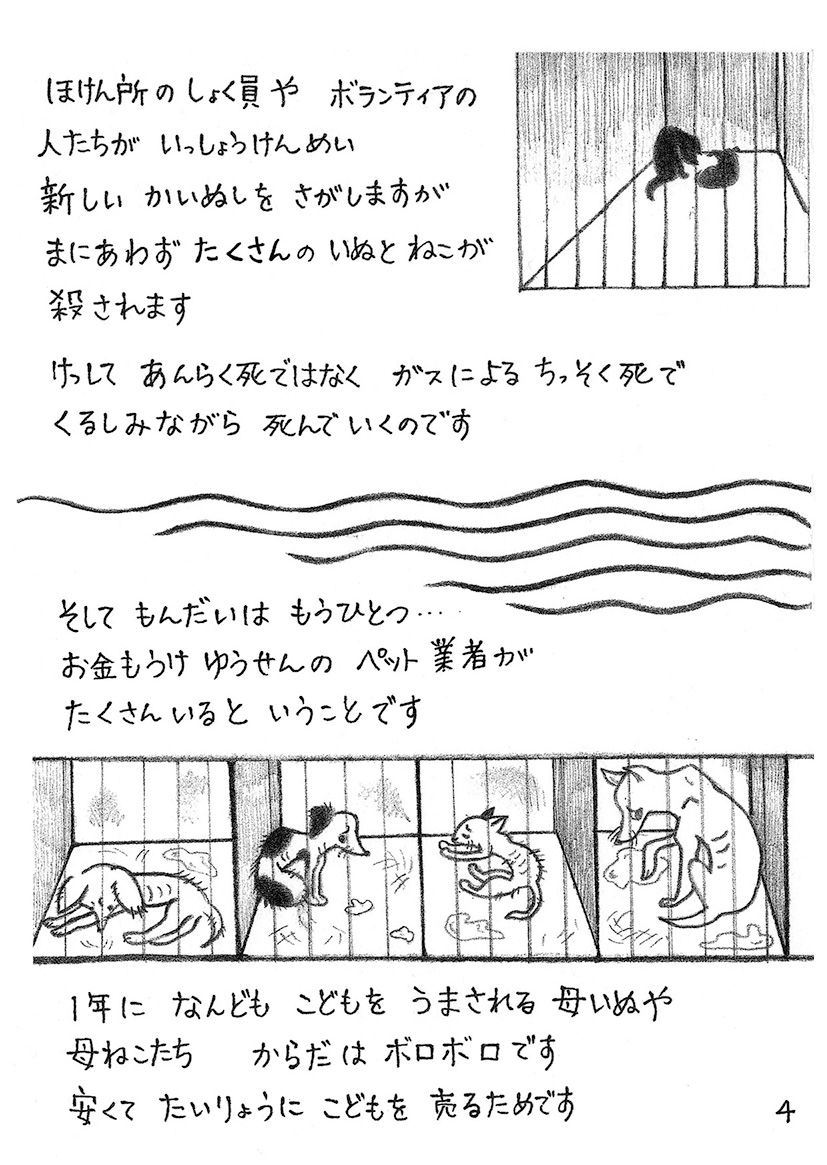 ほけん所の しょく員や ボランティアの
人たちが いっしょうけんめい
新しい かいぬしを さがしますが
まにあわず たくさんの いぬと ねこが
殺されます
けっして あんらく死ではなく ガスによる ちっそく死で
くるしみながら 死んでいくのです
そして もんだいは もうひとつ…
お金もうけ ゆうせんの ペット業者が
たくさんいると いうことです
1年に なんども こどもを うまされる 母いぬや
母ねこたち からだは ボロボロです
安くて たいりょうに こどもを 売るためです
4